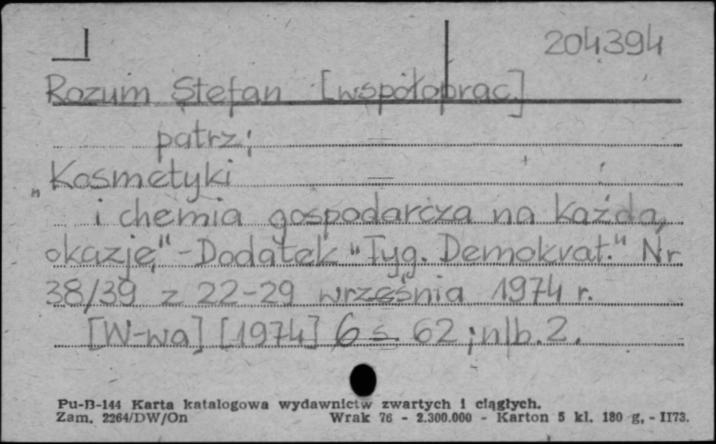 204394
Rozum Stefan [współoprac.]
patrz:
„Kosmetyki
i chemia gospodarcza na każdą
okazję" - Dodatek "Tyg. Demokrat." Nr
38/39 z 22-29 września 1974 r.
[W-wa] [1974] 6 s. 62 ; nlb. 2.
Pu-B-144 Karta katalogowa wydawnictw zwartych i ciągłych.
Zam. 2264/DW/On Wrak 76 - 2.300.000 - Karton 5 kl. 180 g. - II73.